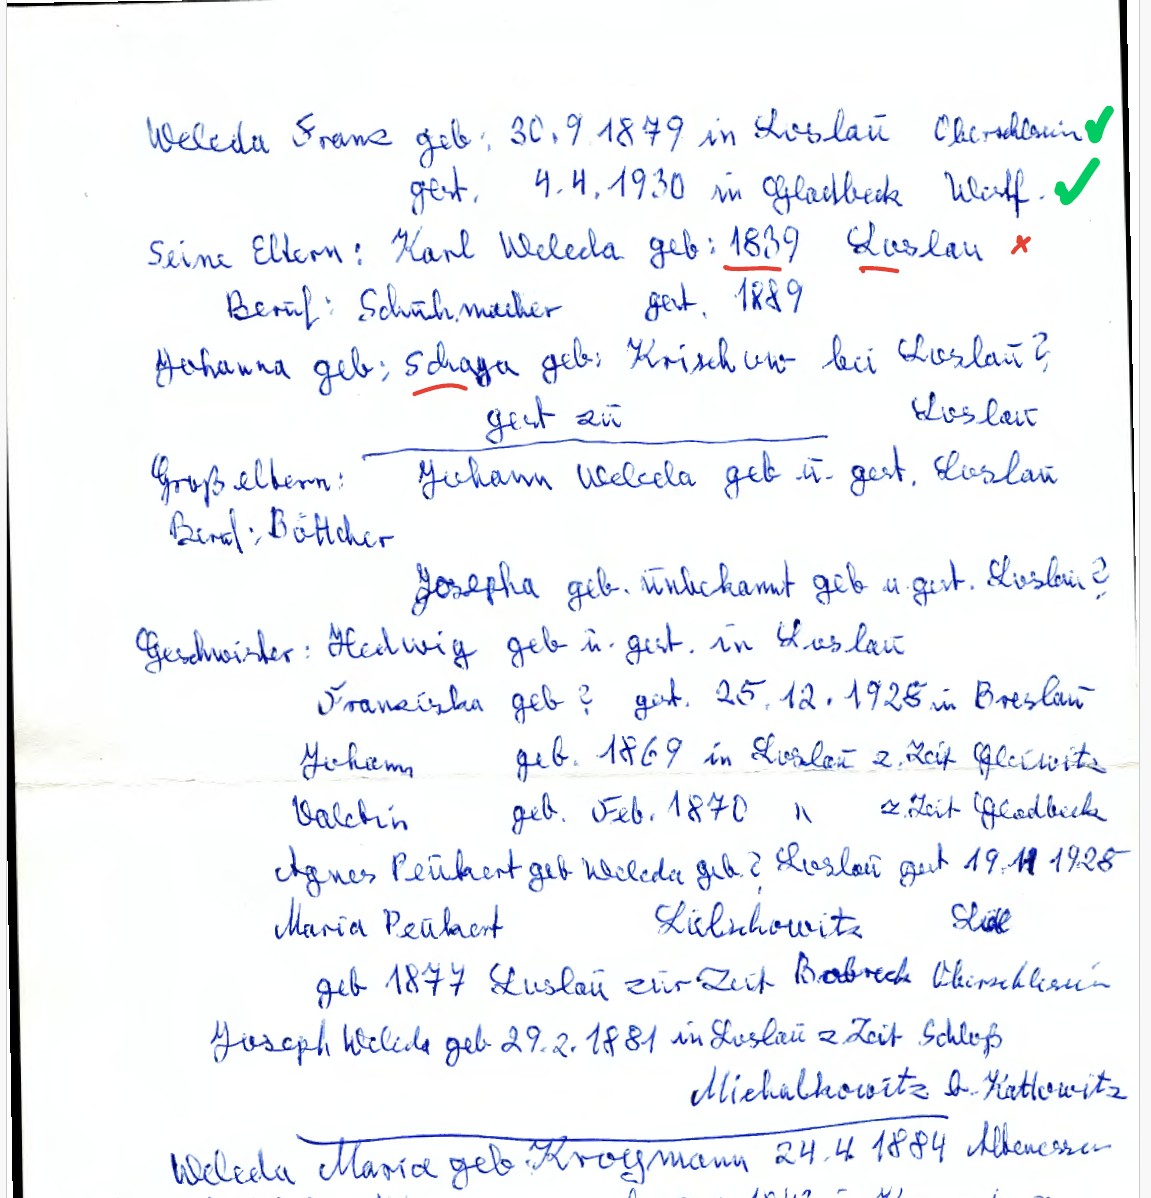 Weleda Franz geb: 30.9.1879 in Loslau Oberschlesien
gest. 4.4.1930 in Gladbeck Westf.
Seine Eltern: Karl Weleda geb: 1839 Loslau
Beruf: Schuhmacher gest. 1889
Johanna geb: geb: bei Loslau?
gest zu Loslau
Großeltern: Johann Weleda geb u. gest. Loslau
Beruf: Böttcher
Josepha geb. unbekannt geb u. gest. Loslau?
Geschwister: Hedwig geb u. gest. in Loslau
Franziska geb? gest. 25.12.1925 in Breslau
Johann geb. 1869 in Loslau z. Zeit Gleiwitz
geb. Feb. 1870 " z. Zeit Gladbeck
Agnes Peukert geb Weleda geb.? Loslau gest 19.11 1925
Maria Peukert
geb 1877 Loslau zur Zeit Bobreck Oberschlesien
Joseph Weleda geb 29.2.1881 in Loslau z Zeit Schloß
Michalkowitz b. Kattowitz
Weleda Maria geb. Krogmann 24.4 1884 Altenessen